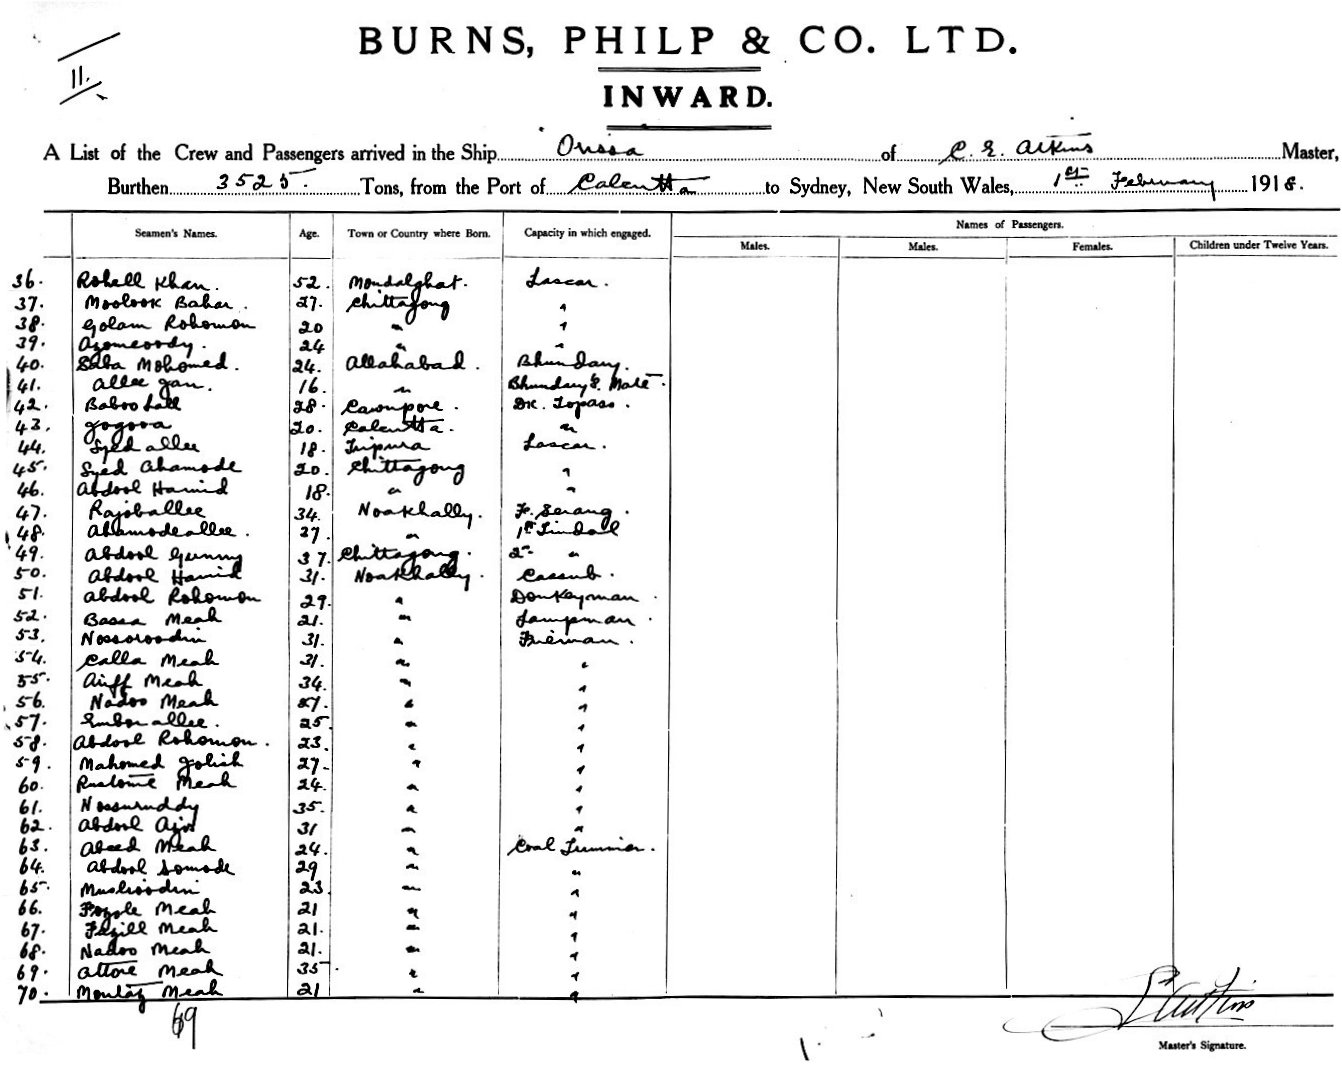 BURNS, PHILP & CO. LTD.
11.
INWARD.
A List of the Crew and Passengers arrived in the Ship Orissa of C. E. Atkins Master,
Burthen 3525. Tons, from the Port of Calcutta to Sydney, New South Wales, 1st February 1918.
Seamen's Names. Age. Town or Country where Born. Capacity in which engaged. Names of Passengers.
Males. Males. Females. Children under Twelve Years.
36. Rohell Khan. 52. Mondalghat. Lascar.
37. Moolook Bahar. 27. Chittagong "
38. Golam Rohomon 20 " "
39. Azomeoody. 24 " "
40. Saba Mohomed. 24. Allahabad. Bhundary.
41. Allee Jan. 16. " Bhundary's Mate.
42. Baboo Lall 28. Cawnpore. Dk. Topass.
43. Gogova 20. Calcutta. "
44. Syed allee 18. Tripura Lascar.
45. Syed Ahamode 20. Chittagong "
46. Abdool Hamid 18. " "
47. Rajoballee 34. Noakhally. Fr. Serang.
48. Ahamodeallee. 27. " 1st Tindall
49. Abdool Gunny 37. Chittagong. 2nd "
50. Abdool Hamid 31. Noakhally. Cassub.
51. Abdool Rohomon 29. " Donkeyman.
52. Bassa Meah 21. " Lampman.
53. Nossoroodin 31. " Fireman.
54. Calla Meah 31. " "
55. Ariff Meah 34. " "
56. Nadoo Meah " "
57. Embor allee. 25 " "
58. Abdool Rohomon. 23. " "
59. Mahomed Golish 27. " "
60. Rustome Meah 24. " "
61. Nossuruddy 35. " "
62. Abdool Ajis 31 " "
63. Abeed Meah 24. " Coal Trimmer.
64. Abdool Somode 29 " "
65. Musliroodin 23 " "
66. Fozzle Meah 21 " "
67. Fazill Meah 21. " "
68. Nadoo Meah 21. " "
69. Attore Meah 35. " "
70. Montaz Meah 21 " "
69
C E Atkins
Master's Signature.